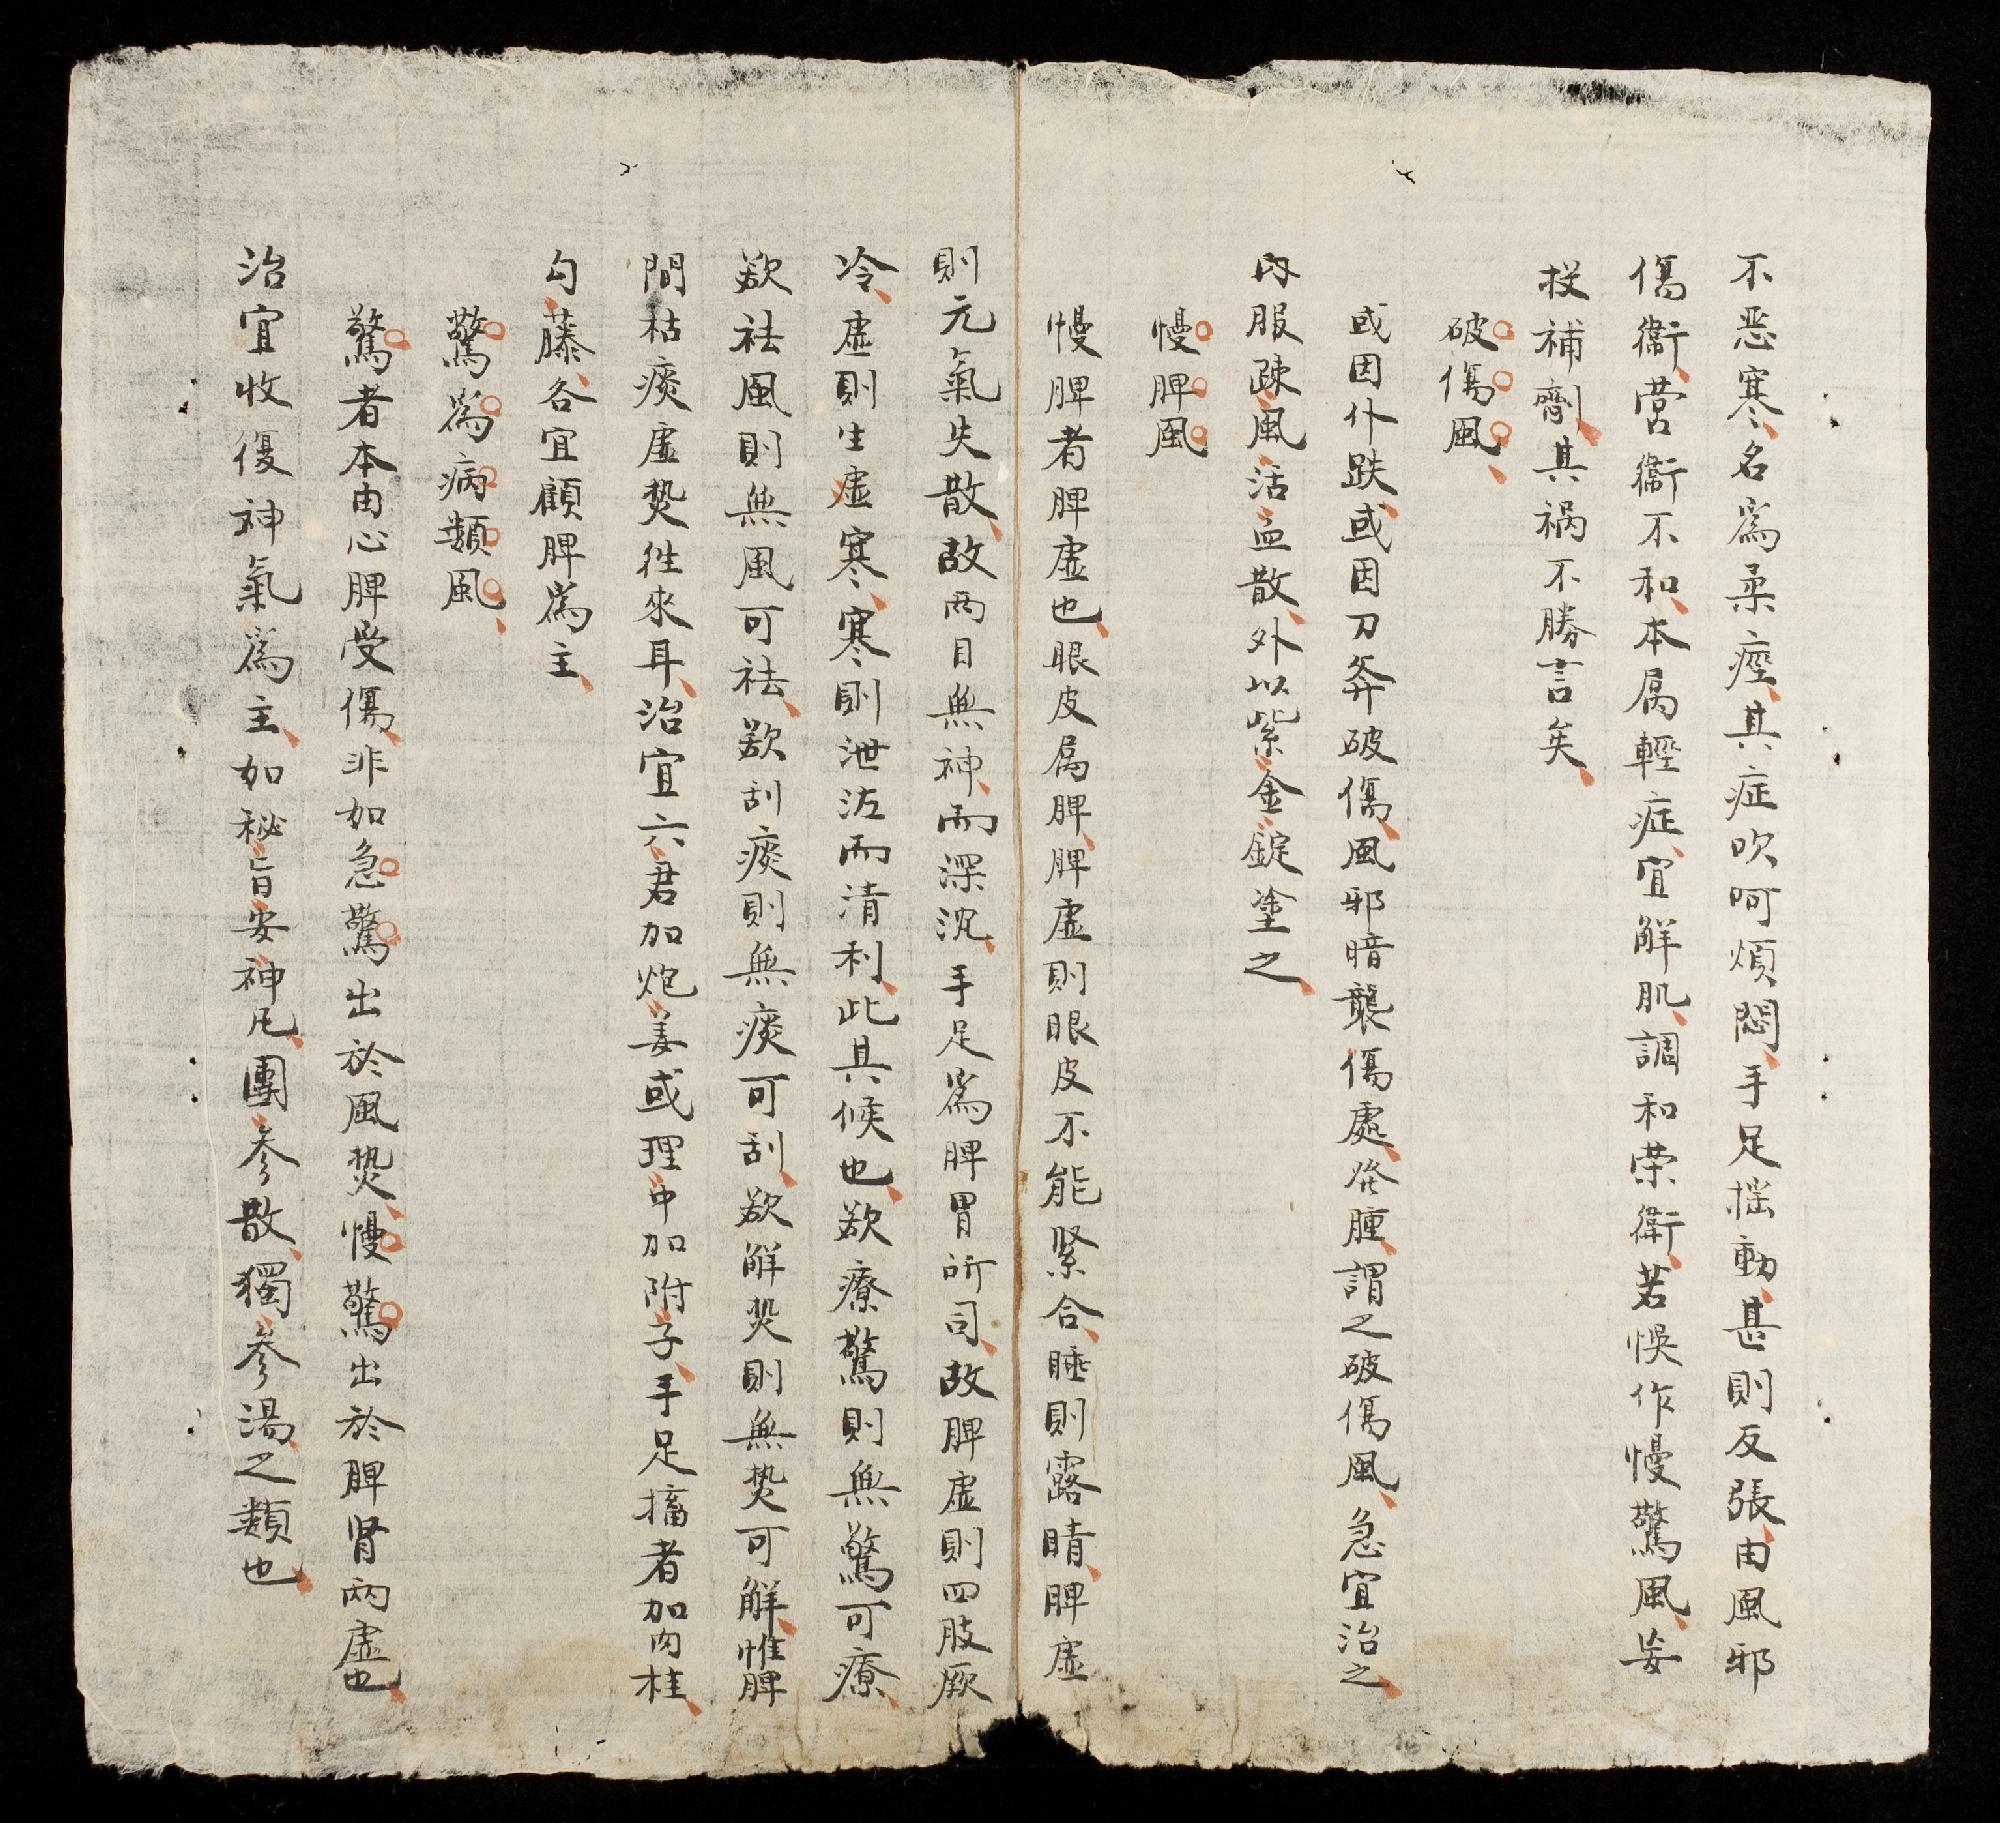 不惡寒、名爲柔痙、其症吹呵煩悶、手足搖動、甚則反張、由風邪
傷衞、营衞不和、本属輕症、宜解肌、調和荣衛、若悞作慢驚風、妄
投補劑、其禍不勝言矣、
破傷風、
或因仆跌、或因刀斧破傷、風邪暗襲傷處、發腫、謂之破傷風、急宜治之、
内服疎風活血散、外以紫金錠塗之、
慢脾風
慢脾者脾虚也、眼皮属脾、脾虚則眼皮不能緊合、睡則露睛、脾虚
則元氣失散、故兩目無神、而深沉、手足爲脾胃所司、故脾虚則四肢厥
冷、虚則生虚寒、寒則泄泻而清利、此其候也、欲療驚則無驚可療、
欲祛風則無風可祛、欲刮痰則無痰可刮、欲解𤍠則無𤍠可解、惟脾
間枯痰虚𤍠徃來耳、治宜六君加炮姜或理中加附子、手足搐者加肉桂、
勾藤、各宜顧脾爲主、
驚爲病類風、
驚者本由心脾受傷、非如急驚出於風𤍠、慢驚出於脾肾兩虚也、
治宜收復神氣爲主、如秘旨安神凡、團參散、獨參湯之類也、